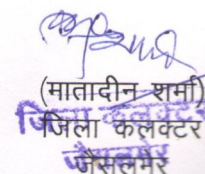 (मातादीन शर्मा)
जिला कलक्टर
जिला कलक्टर
जैसलमेर